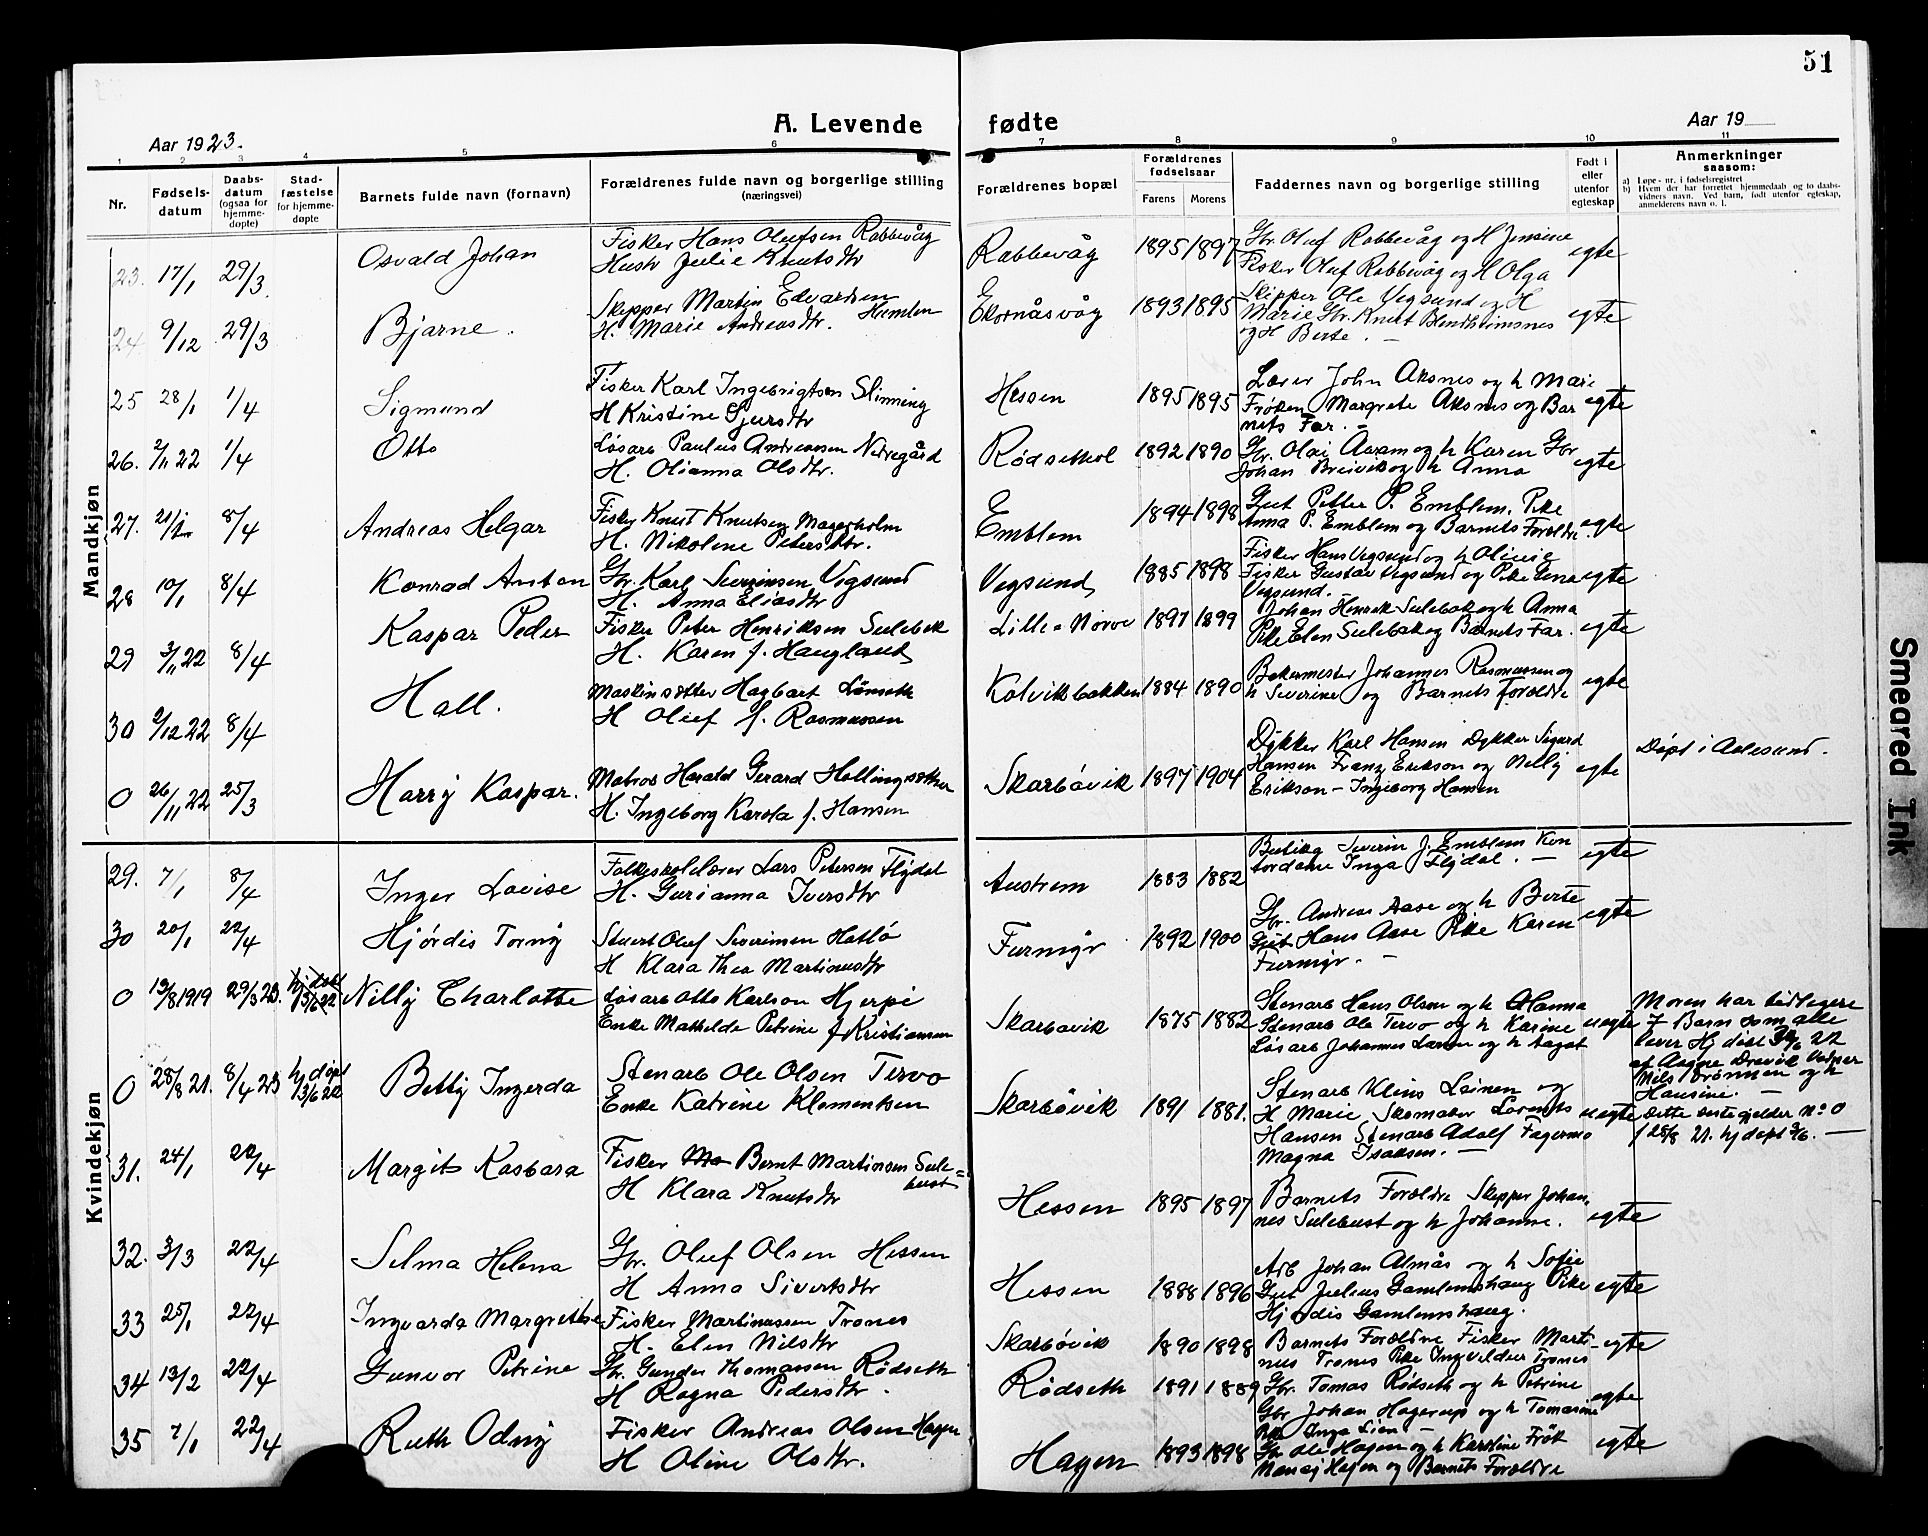 51
A. Levende fødte
Aar 1923.
Aar 19
1 2 3 4 5 6 7 8 9 10 11
Nr.
Fødsels-
datum
Daabs-
datum
(ogsaa for
hjemme-
døpte)
Stad-
fæstelse
for hjemme-
døpte
Barnets fulde navn (fornavn)
Forældrenes fulde navn og borgerlige stilling
(næringsvei)
Forældrenes bopæl
Forældrenes
fødselsaar
Farens Morens
Faddernes navn og borgerlige stilling
Født i
eller
utenfor
egteskap
Anmerkninger
saasom:
a) Løpe-nr. i fødselsregistret
b) Hvem der har forrettet hjemmedaab og to daabs-
vidners navn. Ved barn, født utenfor egteskap,
anmelderens navn o. l.
Mandkjøn
23. 17/1 29/3 Osvald Johan
Fisker Hans Olufsen Rabbevåg
Hustr Julie Knutsdtr
Rabbevåg 1895 1897
Gbr. Oluf Rabbevåg og H Jensine
Fisker Oluf Rabbevåg og H Olga
egte
24 9/12 29/3 Bjarne.
Skipper Martin Edvardsen Humlen
H. Marie Andreasdtr.
Ekornåsvåg 1893 1895
Skipper Ole Vegsund og H
Marie Gbr. Knut Blindheimsnes
og H Berte. —
egte
25 28/1 1/4 Sigmund
Fisker Karl Ingebrigtsen Slinning
H Kristine Sjursdtr
Hessen 1895 1895
Lærer John Aksnes og h Marie
Frøken Margrete Aksnes og Bar
nets Far. —
egte
26. 2/11 22 1/4 Otto
Løsarb Paulus Andreassen Nedregård
H. Olianna Olsdtr.
Rødsetkol 1892 1890
Gbr. Olai Aaram og h Karen Gbr
Johan Breivik og h Anna
egte
27. 21/1 8/4 Andreas Helgar
Fisker Knut Knutsen Magerholm
H. Nikoline Petersdtr.
Emblem 1894 1898
Gut Petter P. Emblem. Pike
Anna P. Emblem og Barnets Forældre.
egte
28 10/1 8/4 Konrad Anton
Gbr. Karl Severinsen Vegsund
H. Anna Eliasdtr
Vegsund 1885 1898
Fisker Hans Vegsund og h Olivie
Fisker Gustav Vegsund og Pike Gina
Vegsund.
egte
29 3/11 22 8/4 Kaspar Peder
Fisker Peter Henriksen Sulebak
H. Karen f. Haugland
Lille-Nørve 1897 1899
Johan Henrik Sulebak og h Anna
Pike Elen Sulebak og Barnets Far.
egte
30 2/12 22 8/4 Hall.
Maskinsetter Hagbart Lønseth
H Oluf f. Rasmussen
Kolvikbakken 1884 1890
Bakermester Johannes Rasmussen og
h Severine og Barnets Forældre
egte
0 26/11 22 25/3 Harry Kaspar.
Matros Harald Gerard Hollingsæther
H. Ingeborg Karola f. Hansen
Skarbøvik 1897 1904
Dykker Karl Hansen Dykker Sigurd
Hansen Franz Erikson og Nelly
Erikson — Ingeborg Hansen
egte
Døpt i Aalesund.
Kvindekjøn
29. 7/1 8/4 Inger Lovise
Folkeskolelærer Lars Petersen Flydal
H. Gurianna Iversdtr
Austrem 1883 1882
Butikg Severin J. Emblem Kon
tordame Inga Flydal. —
egte
30 20/1 22/4 Hjørdis Torny
Stuert Oluf Severinsen Hatlø
H Klara Thea Martinusdtr
Furmyr 1892 1900
Gbr. Andreas Aase og h Berte
Gut Hans Aase Pike Karen
Furmyr. —
egte
0 13/8 1919 29/3 23. hj døbt 13/6 22 Nilly Charlotte
Løsarb Otto Karlson Hjerpe
Enke Mathilde Petrine f Kristiansen
Skarbøvik 1875 1882
Stenarb Hans Olsen og h Hanna
Stenarb Ole Tervo og h Karine
Løsarb Johannes Larsen og h Aagot
uegte
Moren har tidligere
7 Barn som alle
lever Hj døbt 30/6 22
af Aagne Drevik Vidner
Nils Brønmen og h
Hansine. —
0 28/8 21. 8/4 23 hj døpt 13/6 22 Betty Ingerda
Stenarb Ole Olsen Tervo
Enke Katrine Klementsen
Skarbøvik 1891 1881.
Stenarb Klaus Leinen og
H Marie Skomaker Lorents
Hansen Stenarb Adolf Fagermo
Magna Isaksen. —
uegte
Dette siste gjelder No 0
f 28/8 21. hj døpt 3/6. —
31. 24/1 22/4 Margit Kasbara
Fisker Bernt Martinsen Sule-
bust
H Klara Knutsdtr
Hessen 1895 1897
Barnets Forældre Skipper Johan-
nes Sulebust og h Johanne.
egte
32. 3/3 22/4 Selma Helena
Gbr. Oluf Olsen Hessen
H Anna Sivertsdtr
Hessen 1888 1896
Arb Johan Almås og h Sofie
Gut Julius Gamlemshaug Pike
Hjørdis Gamlemshaug.
egte
33 25/1 22/4 Ingvarda Margrethe
Fisker Martinussen Tranes
H. Elen Nilsdtr
Skarbøvik 1890 1898
Barnets Forældre Fisker Marti-
nus Tranes Pike Ingvilder Tranes
egte
34 13/2 22/4 Gunvor Petrine
Gbr. Gunder Thomassen Rødseth
H Ragna Pedersdtr.
Rødseth 1891 1889
Gbr. Tomas Rødseth og h Petrine
Gbr Johan Hagerup og h Tomasine
Pike Inga Lien —
egte
35 7/1 22/4 Ruth Odny
Fisker Andreas Olsen Hagen
H Oline Olsdtr.
Hagen 1893 1898
Gbr Ole Hagen og h Karoline Frøk
Nancy Hagen og Barnets Forældre
egte
Smeared Ink